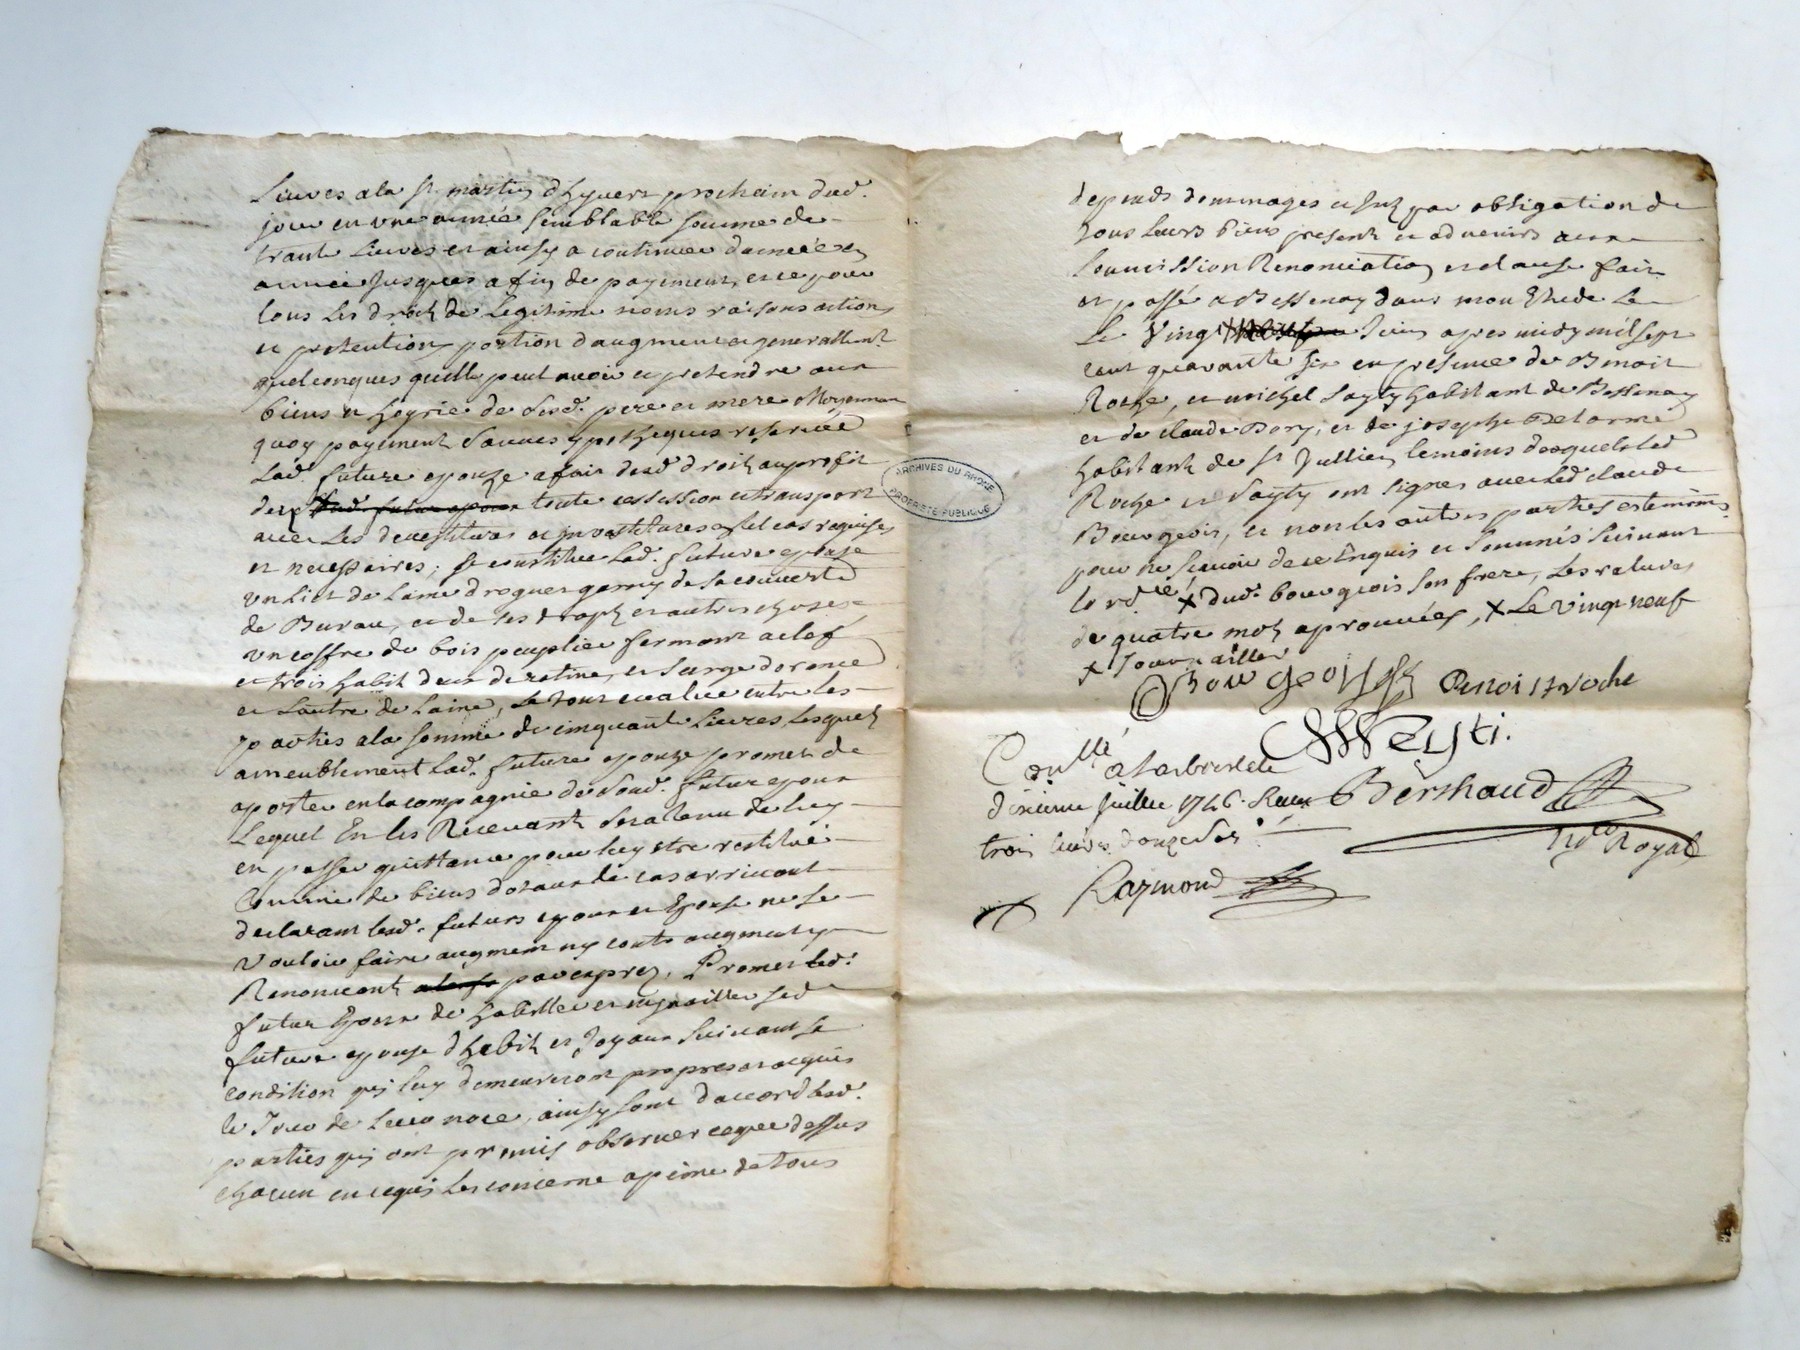 Livres a la st martin dhyvert prochain dud.
jour en une année semblable somme de
trante Livres et ainsy a continuer dannée en
année jusques a fin de payement, et ce pour
tous les droits de Legitime noms raisons actions
et pretentions portion daugment et generallemt.
quelconques quelle peut avoir et pretendre aux
biens et hoyrie de sesd. pere et mere Moyennant
quoy payement sauves ypotheques reservée
Lad. future epouze a fait desd. droits au profit
de toute cession et transport
avec les devestitures et investitures en tel cas requises
et necessaires; se constitue Lad. future epouse
un Lict de Laine garny de sa couverte
de Bureau, et de ses draps et autres choses,
un coffre de bois peuplier fermant a clef
et trois habits deux de ratine, et sarge
et Lautre de Laine, Le tout evalué entre les
parties a la somme de cinquante Livres, Lesquels
ameublement Lad. future epouze promet de
aporter en la compagnie de sond. futur epoux
Lequel En les Recevant sera tenu de luy
en passer quittance pour luy etre restitué
Comme de biens dotaux le cas arrivant
declarant lesd. futurs epoux et Epouse ne se
vouloir faire augment ny contre augment y
Renoncant par exprez, Promet led.
futur Epoux de habiller et enjoailler sad.
future epouse dhabits et Joyaux suivant sa
condition qui luy demeureront propres et acquis
le Jour de Leur noce, ainsy sont daccord lesd.
parties qui ont promis observer ce que dessus
chacun en ce qui les concerne a peine de tous
depends dommages et par obligation de
tous Leurs biens presents et advenirs avec
soumission Renonciation et clause fait
et passé a Bessenay dans mon Etude Le
Le Vingt Juin apres midy mil sept
cent quarante six en presence de Benoit
Roche, et michel Sayty habitant de Bessenay
et de claude Bory, et de joseph Delorme
habitants de st Jullien temoins desquels led
Roche et Sayty ont signes avec Led claude
Bourgeois, et non les autres parties et temoins
pour ne scavoir de ce Enquis et sommés suivant
lordce x dud. bourgeois son frere, Les ratures
de quatre mots aprouvées, x Le vingt neuf
x Jouvailler
Bourgeois
Benoist roche
Cônllé a Larbresle le
MSeyti.
dixieme Juillet 1746. Reçu
Berthaud
trois livres douze sols
Nore Royal
Raymond
ARCHIVES DU RHONE
PROPRIETE PUBLIQUE